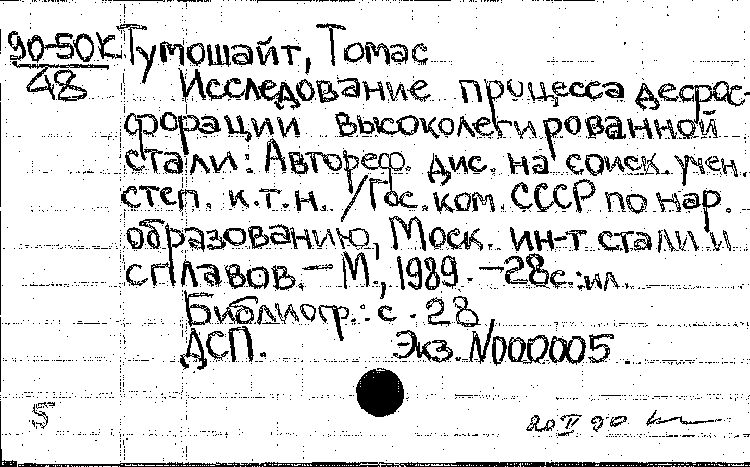 90-50К Тумошайт, Томас
48
Исследование процесса десрос-
форации высоколегированной
стали: Автореф. дис. на соиск. учен.
степ. к.т.н. / Гос. ком. СССР по нар.
образованию, Моск. ин-т стали и
сплавов. — М., 1989. — 28с.: ил.
Библиогр.: с. 28
ДСП. Экз. N000005.
5
20 II 90